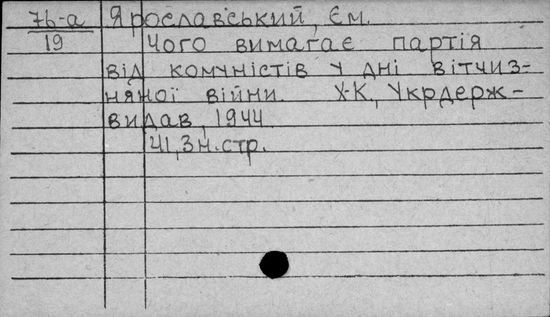 76-а Ярославський, Єм.
19 Чого вимагає партія
від комуністів у дні вітчиз-
няної війни. Х-К., Укрдерж-
видав, 1944
41, 3 н. стр.